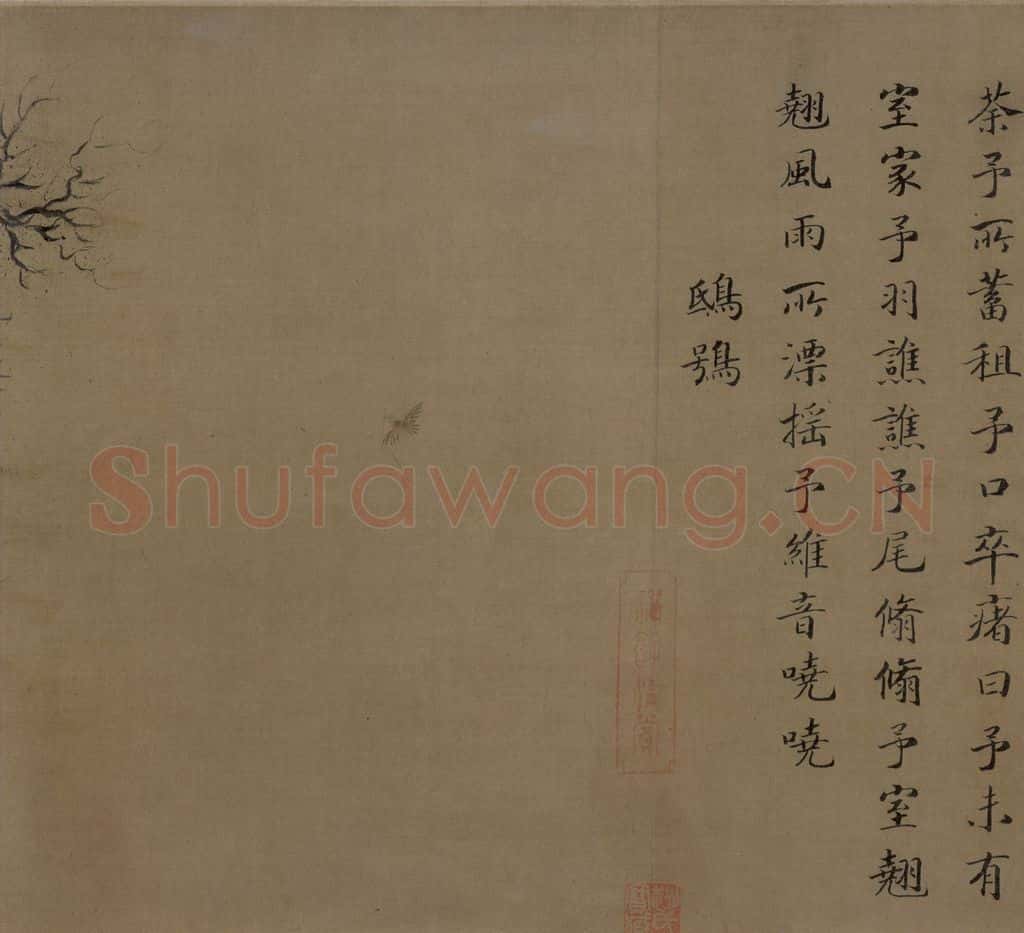 荼予所蓄租予口卒瘏曰予未有
室家予羽譙譙予尾翛翛予室翹
翹風雨所漂摇予維音嘵嘵
鴟鴞
Shufawang.CN